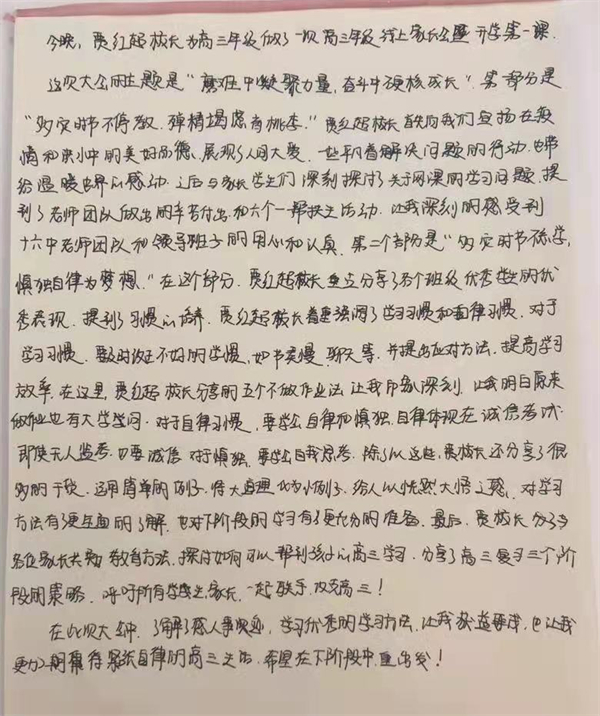 今晚，贾红起校长为高三年级做了一次高三年级线上家长会暨开学第一课.
这次大会的主题是“磨难中凝聚力量，奋斗中硬核成长”. 第一部分是
“灾时节不停教，殚精竭虑育桃李.”贾红起校长首先向我们宣扬在疫
情和洪水中的美好品德，展现了人间大爱. 一些平凡者解决问题的行动，也带
给温暖世界以感动. 之后与家长学生们深刻探讨了关于网课的学习问题，提
到了老师团队做出的辛苦付出和六个一帮扶生活动，让我深刻的感受到
十六中老师团队和领导班子的用心和认真. 第二个部分是“多灾时节不停学，
慎独自律为梦想.”在这个部分，贾红起校长重点分享了各个班级优秀学生的优
秀表现，提到了习惯的培养. 贾红起校长着重强调了学习习惯和自律习惯. 对于
学习习惯，要及时改正不好的学惯，如节奏慢，聊天等，并提出应对方法，提高学习
效率. 在这里，贾红起校长分享的五个不做作业法让我印象深刻，让我明白原来
做作业也有大学学问. 对于自律习惯，要学会自律和慎独，自律体现在诚信考试
即使无人监考，也要诚信. 对于慎独，要学会自我思考. 除了以这些，贾校长还分享了很
多的干货，运用简单的例子，将大道理化为小例子，给人以恍然大悟之感，对学习
方法有了更全面的了解，也对下阶段的学习有了更充分的准备. 最后，贾校长分享
各位家长共勉教育方法，探讨如何可以帮到孩子的高三学习. 分享了高三复习三个阶
段的策略，呼吁所有学学生，家长，一起联手，攻克高三！
在此次大会中，了解了感人事迹，学习优秀的学习方法，让我获益匪浅，也让我
更加期待紧张自律的高三生活，希望在下阶段中，重出发！